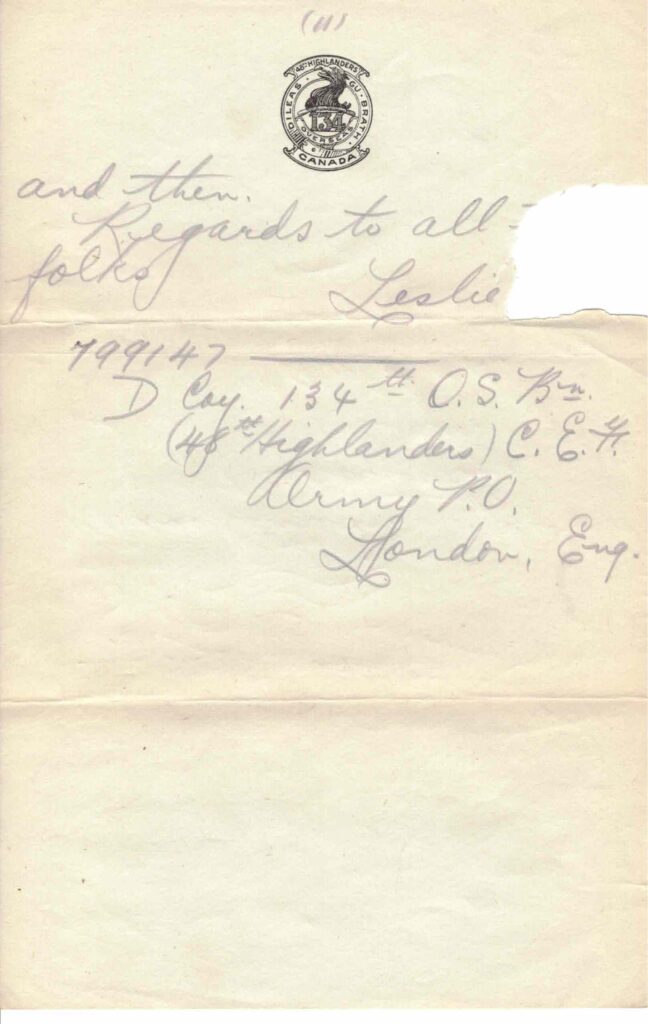 (11)
48TH HIGHLANDERS
DILEAS GU BRATH
134
OVERSEAS
CANADA
and then.
Regards to all
folks
Leslie
799147
D Coy. 134th O.S. Bn.
(48th Highlanders) C.E.F.
Army P.O.
London, Eng.